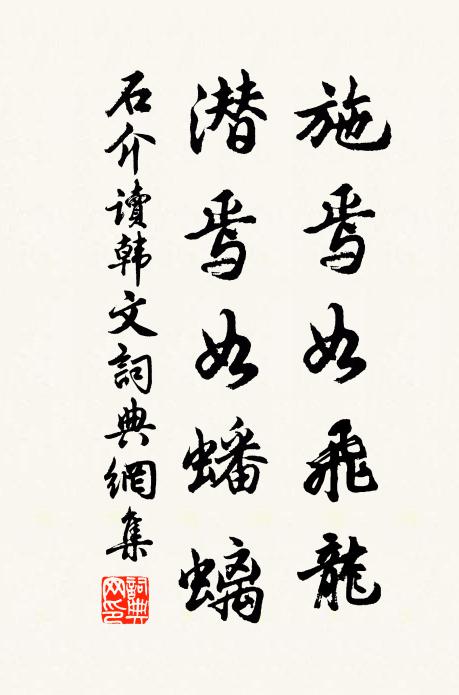 施焉如飛龍
潜焉如蟠螭
石介讀韩文詞典網集
詞典網印